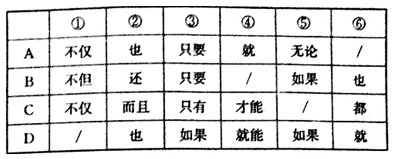 ① ② ③ ④ ⑤ ⑥
A 不仅 也 只要 就 无论 /
B 不但 还 只要 / 如果 也
C 不仅 而且 只有 才能 / 都
D / 也 如果 就能 如果 就